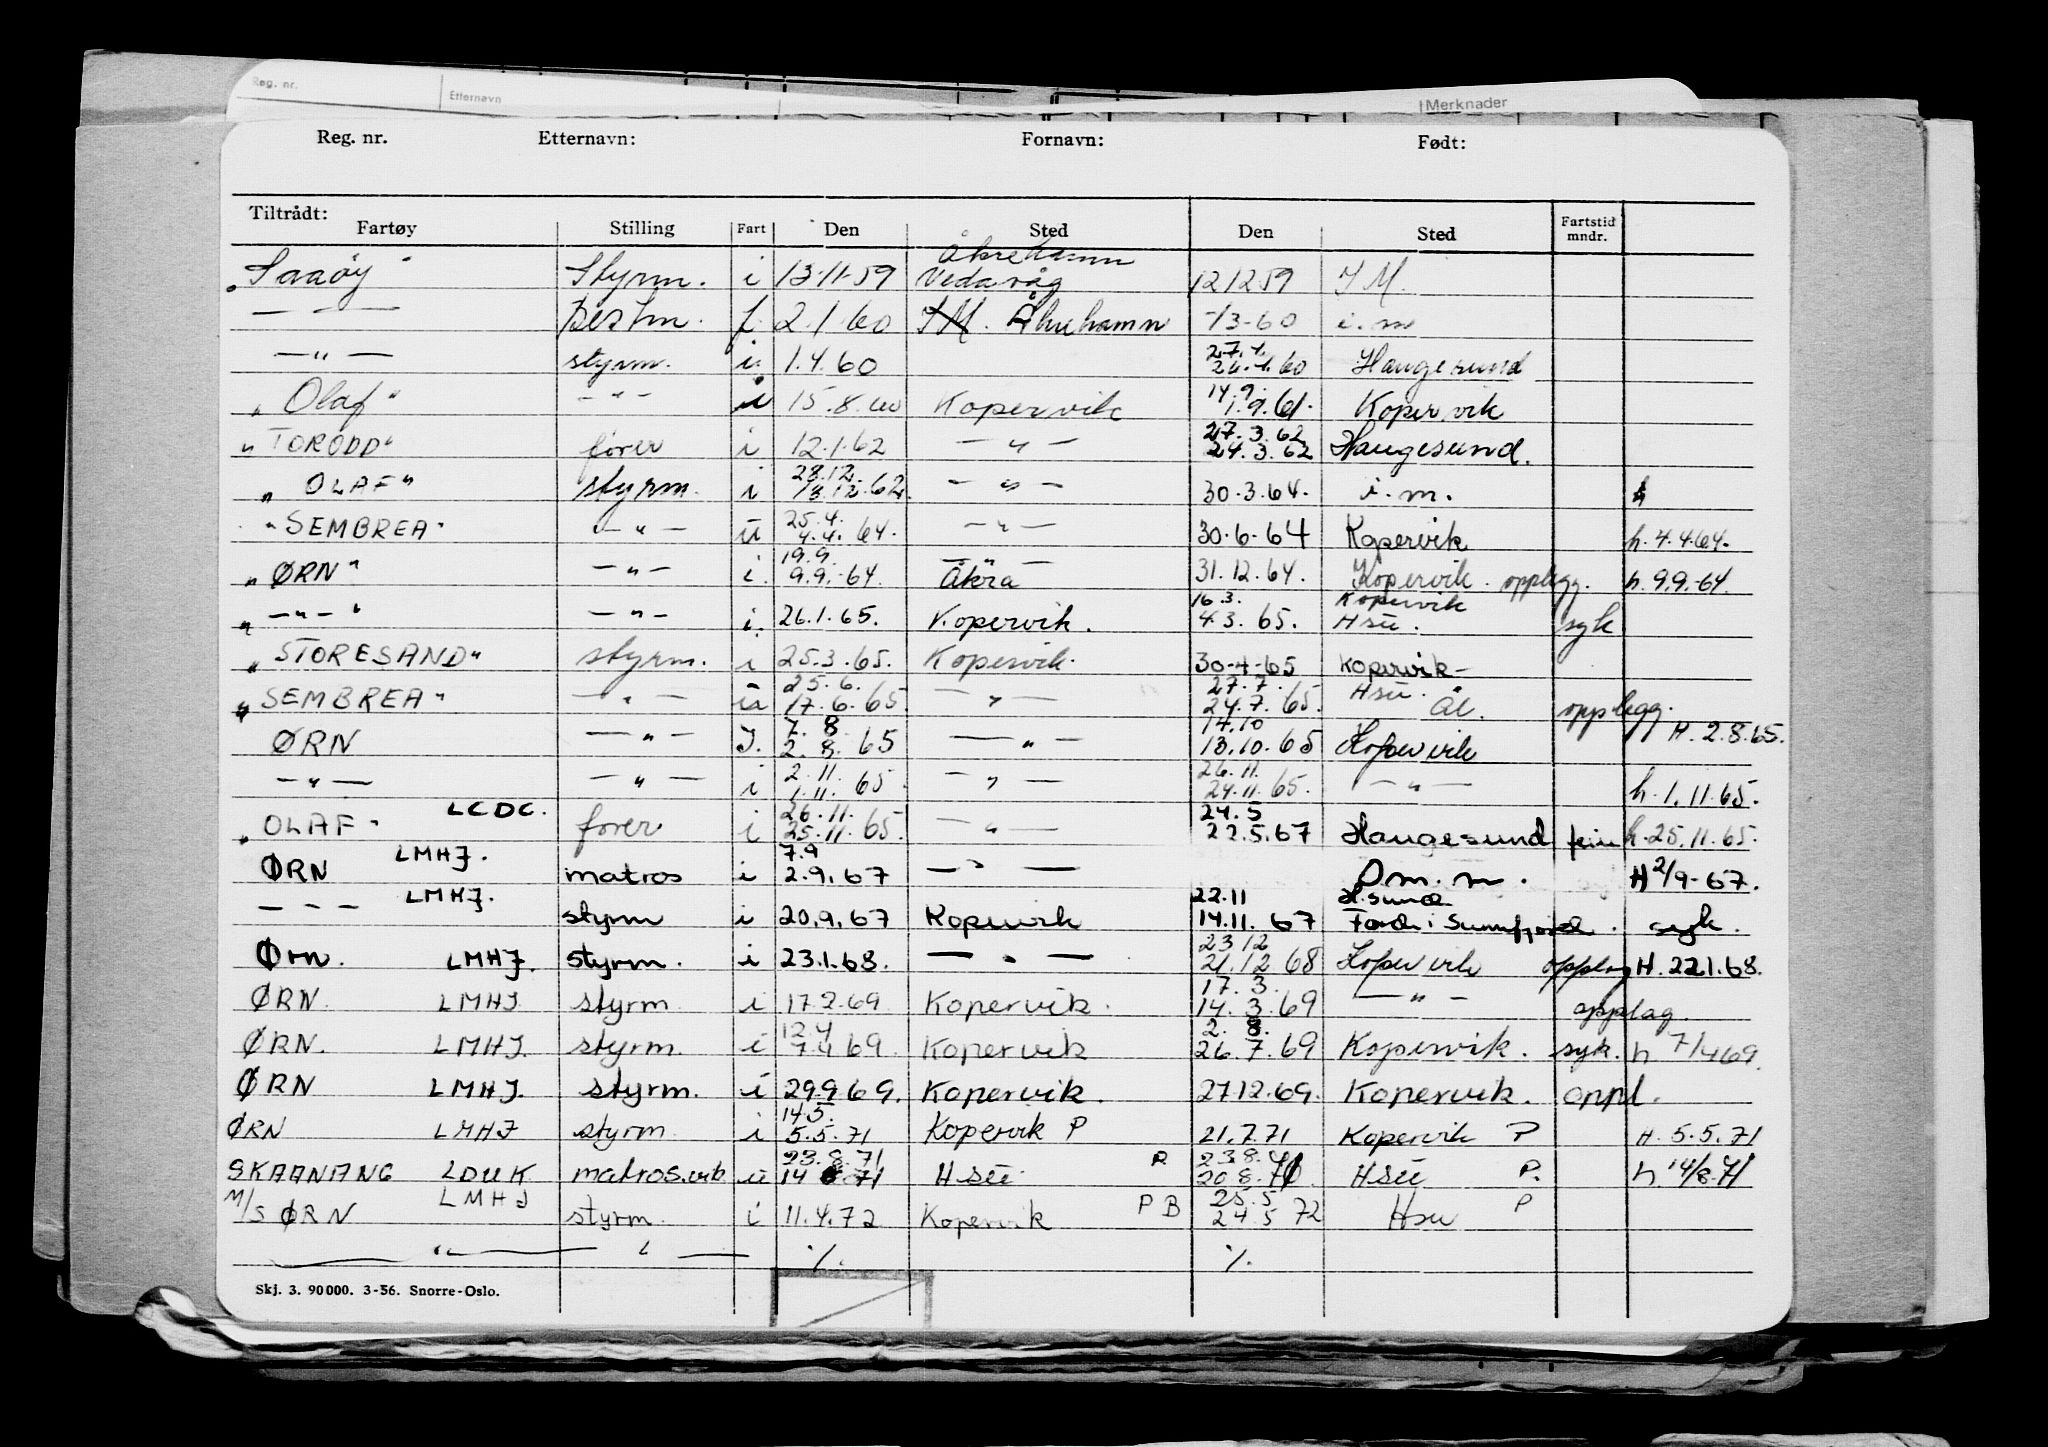 Reg. nr.
Etternavn
Merknader
Reg. nr. Etternavn: Fornavn: Født:
Tiltrådt:
Fartøy Stilling Fart Den Sted Den Sted Fartstid mndr.
Åkrehamn
Styrm. i 13-11-59 Vedavåg 12 12 59 I M.
— " — Bestm. f. 2.1.60 Åkrehamn -/3-60 i. m
— " — styrm. i 1.4.60 60 Haugesund
27.4.
14.9.
" Olaf " — " — i 15.8.60 Kopervik 1.9.61. Kopervik
27.3.62
" TORODD " fører i 12.1.62 — " — 24.3.62 Haugesund.
28.12.
" OLAF " styrm. i 18.12.62. — " — 30.3.64. i. m. h
25.4.
" SEMBREA " — " — u 4.4.64. — " — 30-6-64 Kopervik h. 4.4.64.
19.9.
" ØRN " — " — i. 9.9.-64. Åkra 31.12.64. Kopervik. opplegg. h. 9.9.-64.
16.3. Kopervik
" — " — " — " — i. 26.1.65. Kopervik. 4.3.65. Hsu. syk
" STORESAND " styrm. i 25.3.65. Kopervik. 30-4-65 Kopervik —
25.6. 27.7. Hsu.
" SEMBREA " — " — 17.6.65 — " — 24.7.65. Ål. opplegg.
7.8 14.10
ØRN — " — I. 2.8.65 — " — 13.10.65 Kopervik H. 2.8.65.
2.11. 26.11.
— " — — " — i 1.11.65 — " — 24.11.65. — " — h. 1.11.65.
26.11. 24.5
" OLAF " LCDC. fører i 25.11.65. — " — 22.5.67 Haugesund h. 25.11.65.
7.9
ØRN LMHJ. matros i 2.9.67 — " — Om. m. H 2/9-67.
22.11 H.sund
— — — LMHJ. styrm i 20.9.67 Kopervik 14.11.67 syk.
23 12
Ørn. LMHJ. styrm. i 23.1.68. — " — 21.12 68 Kopervik opplag H. 22.1.68.
17.3.
ØRN. LMHJ styrm. i 17.2.69 Kopervik. 14.3.69 — " — opplag.
12.4 2.8.
ØRN. LMHJ. styrm. i 7.4 69. Kopervik 26.7.69 Kopervik. syk. h 7/4 69.
ØRN LMHJ. styrm. i 29.9 69. Kopervik. 27.12.69. Kopervik. oppl.
14.5.
ØRN LMHJ styrm. i 5.5.71 Kopervik P 21.7.71 Kopervik P H. 5.5.71
23.8.71 23.8.71
SKAANANG LDUK matros.vib u 14 8 71 Hsu. P 20 8. Hsu P. h. 14/8.71
M/S ØRN LMHJ styrm. i 11.4.72 Kopervik P B 24.5 72 Hsu P
25.5
" " ./. ./.
Skj. 3. 90 000. 3-56. Snorre-Oslo.